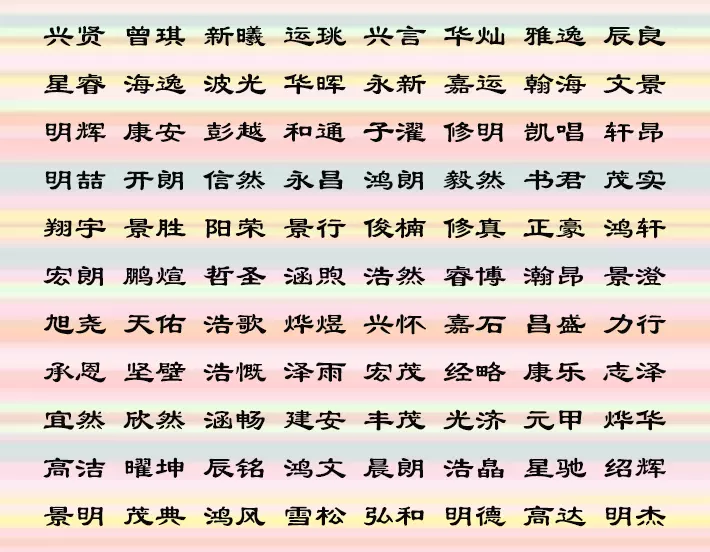 兴贤 曾琪 新曦 运珧 兴言 华灿 雅逸 辰良
星睿 海逸 波光 华晖 永新 嘉运 翰海 文景
明辉 康安 彭越 和通 子濯 修明 凯唱 轩昂
明喆 开朗 信然 永昌 鸿朗 毅然 书君 茂实
翔宇 景胜 阳荣 景行 俊楠 修真 正豪 鸿轩
宏朗 鹏煊 哲圣 涵煦 浩然 睿博 瀚昂 景澄
旭尧 天佑 浩歌 烨煜 兴怀 嘉石 昌盛 力行
承恩 坚壁 浩慨 泽雨 宏茂 经略 康乐 志泽
宜然 欣然 涵畅 建安 丰茂 光济 元甲 烨华
高洁 曜坤 辰铭 鸿文 晨朗 浩皛 星驰 绍辉
景明 茂典 鸿风 雪松 弘和 明德 高达 明杰